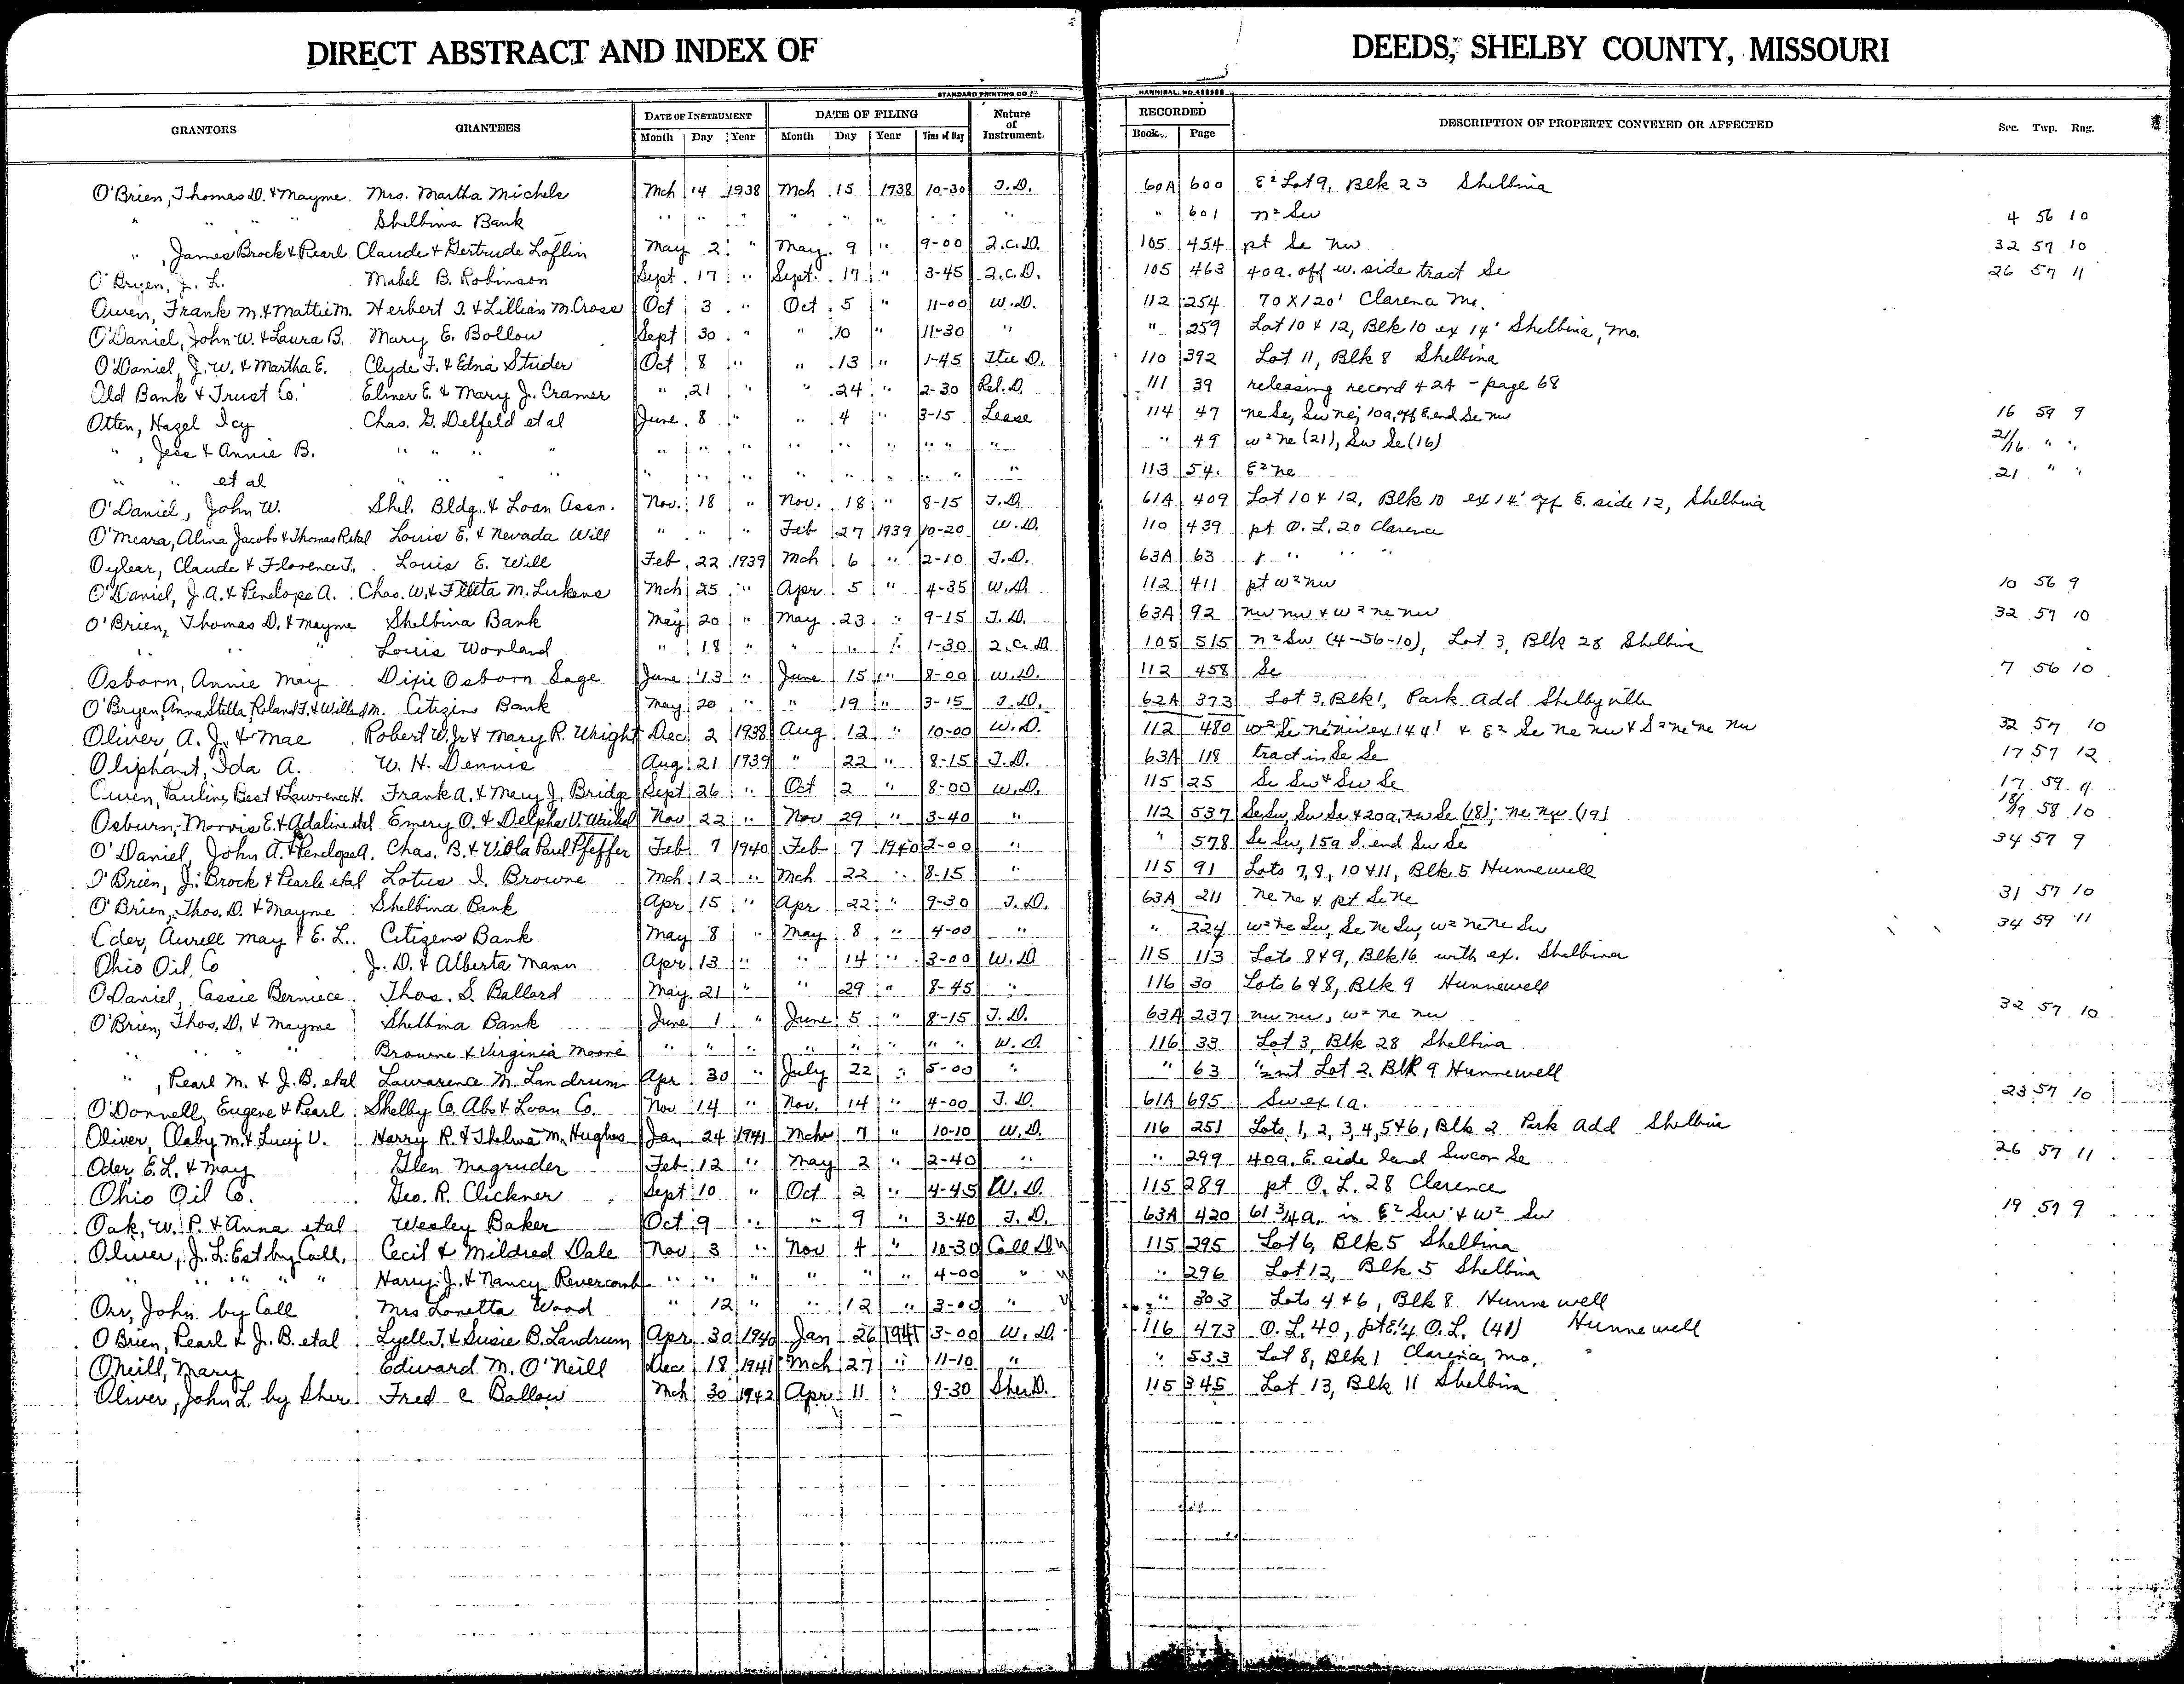 DIRECT ABSTRACT AND INDEX OF DEEDS, SHELBY COUNTY, MISSOURI
STANDARD PRINTING CO. HANNIBAL, MO.
GRANTORS GRANTEES DATE OF INSTRUMENT DATE OF FILING Nature of Instrument RECORDED DESCRIPTION OF PROPERTY CONVEYED OR AFFECTED Sec. Twp. Rng.
Month Day Year Month Day Year Time of Day Book Page
O'Brien, Thomas D. & Mayme Mrs. Martha Michels Mch 14 1938 Mch 15 1938 10-30 T.D. 60A 600 E² Lot 9, Blk 23 Shelbina
" " " Shelbina Bank " " " " " " " " " 601 N² Sw 4 56 10
" , James Brock & Pearl Claude & Gertrude Loflin May 2 " May 9 " 9-00 2.C.D. 105 454 pt Se nw 32 57 10
O'Bryen, J. L. Mabel B. Robinson Sept. 17 " Sept. 17 " 3-45 2.C.D. 105 463 40a. off w. side tract Se 26 57 11
Owen, Frank M. & Mattie M. Herbert T. & Lillian M. Cross Oct 3 " Oct 5 " 11-00 W.D. 112 254 70 X 120' Clarence Mo.
O'Daniel, John W. & Laura B. Mary E. Bollow Sept 30 " " 10 " 11-30 " " 259 Lot 10 & 12, Blk 10 ex 14' Shelbina, Mo.
O'Daniel, J. W. & Martha E. Clyde F. & Edna Studer Oct 8 " " 13 " 1-45 Ttee D. 110 392 Lot 11, Blk 8 Shelbina
Old Bank & Trust Co. Elmer E. & Mary J. Cramer " 21 " " 24 " 2-30 Rel. D. 111 39 releasing record 42A - page 68
Otten, Hazel Icy Chas. G. Delfeld et al June 8 " " 4 " 3-15 Lease 114 47 ne Se, Sw ne; 10a, off E. end Se nw 16 59 9
" , Jess & Annie B. " " " " " " " " " " " " " 49 w² ne (21), Sw Se (16) 21/16 " "
" " et al " " " " " " " " " " 113 54 E² ne 21 " "
O'Daniel, John W. Shel. Bldg. & Loan Assn. Nov. 18 " Nov. 18 " 8-15 T.D. 61A 409 Lot 10 & 12, Blk 10 ex 14' off E. side 12, Shelbina
O'Meara, Alma Jacobs & Thomas R etal Louis E. & Nevada Will " " " Feb 27 1939 10-20 W.D. 110 439 pt O. L. 20 Clarence
Oylear, Claude & Florence T. Louis E. Will Feb. 22 1939 Mch 6 " 2-10 T.D. 63A 63 " " "
O'Daniel, J. A. & Penelope A. Chas. W. & M. Lukens Mch 25 " Apr 5 " 4-35 W.D. 112 411 pt w² nw 10 56 9
O'Brien, Thomas D. & Mayme Shelbina Bank May 20 " May 23 " 9-15 T.D. 63A 92 nw nw & w² ne nw 32 57 10
" " " Louis Worland " 18 " " " " 1-30 2.C.D. 105 515 n² Sw (4-56-10), Lot 3, Blk 28 Shelbina
Osborn, Annie May Dixie Osborn Sage June 13 " June 15 " 8-00 W.D. 112 458 Se 7 56 10
O'Bryen, Anna Stella, Roland T. & Willard M. Citizens Bank May 20 " " 19 " 3-15 T.D. 62A 373 Lot 3, Blk 1, Park Add Shelbyville
Oliver, A. J. & Mae Robert W. Jr. & Mary R. Wright Dec. 2 1938 Aug. 12 " 10-00 W.D. 112 480 w² Se ne nw ex 144' & E² Se ne nw & S² ne ne nw 32 57 10
Oliphant, Ida A. W. H. Dennis Aug. 21 1939 " 22 " 8-15 T.D. 63A 118 tract in Se Se 17 57 12
Owen, Pauline Best & Lawrence H. Frank A. & Mary J. Bridge Sept 26 " Oct 2 " 8-00 W.D. 115 25 Se Sw & Sw Se 17 59 9
Osburn, Morris E. & Adaline etal Emery O. & Delpha V. Nov 22 " Nov 29 " 3-40 " 112 537 Se Sw, Sw Se & 20a, nw Se (18); ne nw (19) 18/19 58 10
O'Daniel, John A. & Penelope A. Chas. B. & Viola Paul Pfeffer Feb. 7 1940 Feb 7 1940 2-00 " " 578 Se Sw, 15a S. end Sw Se 34 57 9
O'Brien, J. Brock & Pearle etal Lotus I. Browne Mch 12 " Mch 22 " 8-15 " 115 91 Lots 7, 8, 10 & 11, Blk 5 Hunnewell
O'Brien, Thos. D. & Mayme Shelbina Bank Apr 15 " Apr 22 " 9-30 T.D. 63A 211 ne ne & pt Se ne 31 57 10
Oder, Aurell May & E. L. Citizens Bank May 8 " May 8 " 4-00 " " 224 w² ne Sw, Se ne Sw, w² ne ne Sw 34 59 11
Ohio Oil Co J. D. & Alberta Mann Apr 13 " " 14 " 3-00 W.D. 115 113 Lots 8 & 9, Blk 16 with ex. Shelbina
O'Daniel, Cassie Berniece Thos. S. Ballard May 21 " " 29 " 8-45 " 116 30 Lots 6 & 8, Blk 9 Hunnewell
O'Brien, Thos. D. & Mayme Shelbina Bank June 1 " June 5 " 8-15 T.D. 63A 237 nw nw, w² ne nw 32 57 10
" " " Browne & Virginia Moore " " " " " " " " W.D. 116 33 Lot 3, Blk 28 Shelbina
" , Pearl M. & J. B. etal Lawrence M. Landrum Apr 30 " July 22 " 5-00 " " 63 ½ int Lot 2, Blk 9 Hunnewell
O'Donnell, Eugene & Pearl Shelby Co. Abs & Loan Co. Nov 14 " Nov. 14 " 4-00 T.D. 61A 695 Sw ex 1a. 23 57 10
Oliver, Claby M. & Lucy V. Harry R. & Thelma M. Hughes Jan 24 1941 Mch 7 " 10-10 W.D. 116 251 Lots 1, 2, 3, 4, 5 & 6, Blk 2 Park Add Shelbina
Oder, E. L. & May Glen Magruder Feb 12 " May 2 " 2-40 " " 299 40a. E. side land Sw cor Se 26 57 11
Ohio Oil Co. Geo. R. Clickner Sept 10 " Oct 2 " 4-45 W.D. 115 289 pt O. L. 28 Clarence
Oak, W. P. & Anna etal Wesley Baker Oct 9 " " 9 " 3-40 T.D. 63A 420 61 3/4 a. in E² Sw & w² Sw 19 59 9
Oliver, J. L. Est. by Coll. Cecil & Mildred Dale Nov 3 " Nov 4 " 10-30 Coll D 115 295 Lot 6, Blk 5 Shelbina
" " " " " Harry J. & Nancy Revercomb " " " " " " 4-00 " " 296 Lot 12, Blk 5 Shelbina
Orr, John by Coll Mrs Lonetta Wood " 12 " " 12 " 3-00 " " 303 Lots 4 & 6, Blk 8 Hunnewell
O'Brien, Pearl & J. B. etal Lyell T. & Susie B. Landrum Apr 30 1940 Jan 26 1941 3-00 W.D. 116 473 O. L. 40, pt E¼ O. L. (41) Hunnewell
O'Neill, Mary Edward M. O'Neill Dec. 18 1941 Mch 27 " 11-10 " " 533 Lot 8, Blk 1 Clarence, Mo.
Oliver, John L. by Sher Fred C Ballow Mch 30 1942 Apr 11 " 9-30 Sher D. 115 345 Lot 13, Blk 11 Shelbina